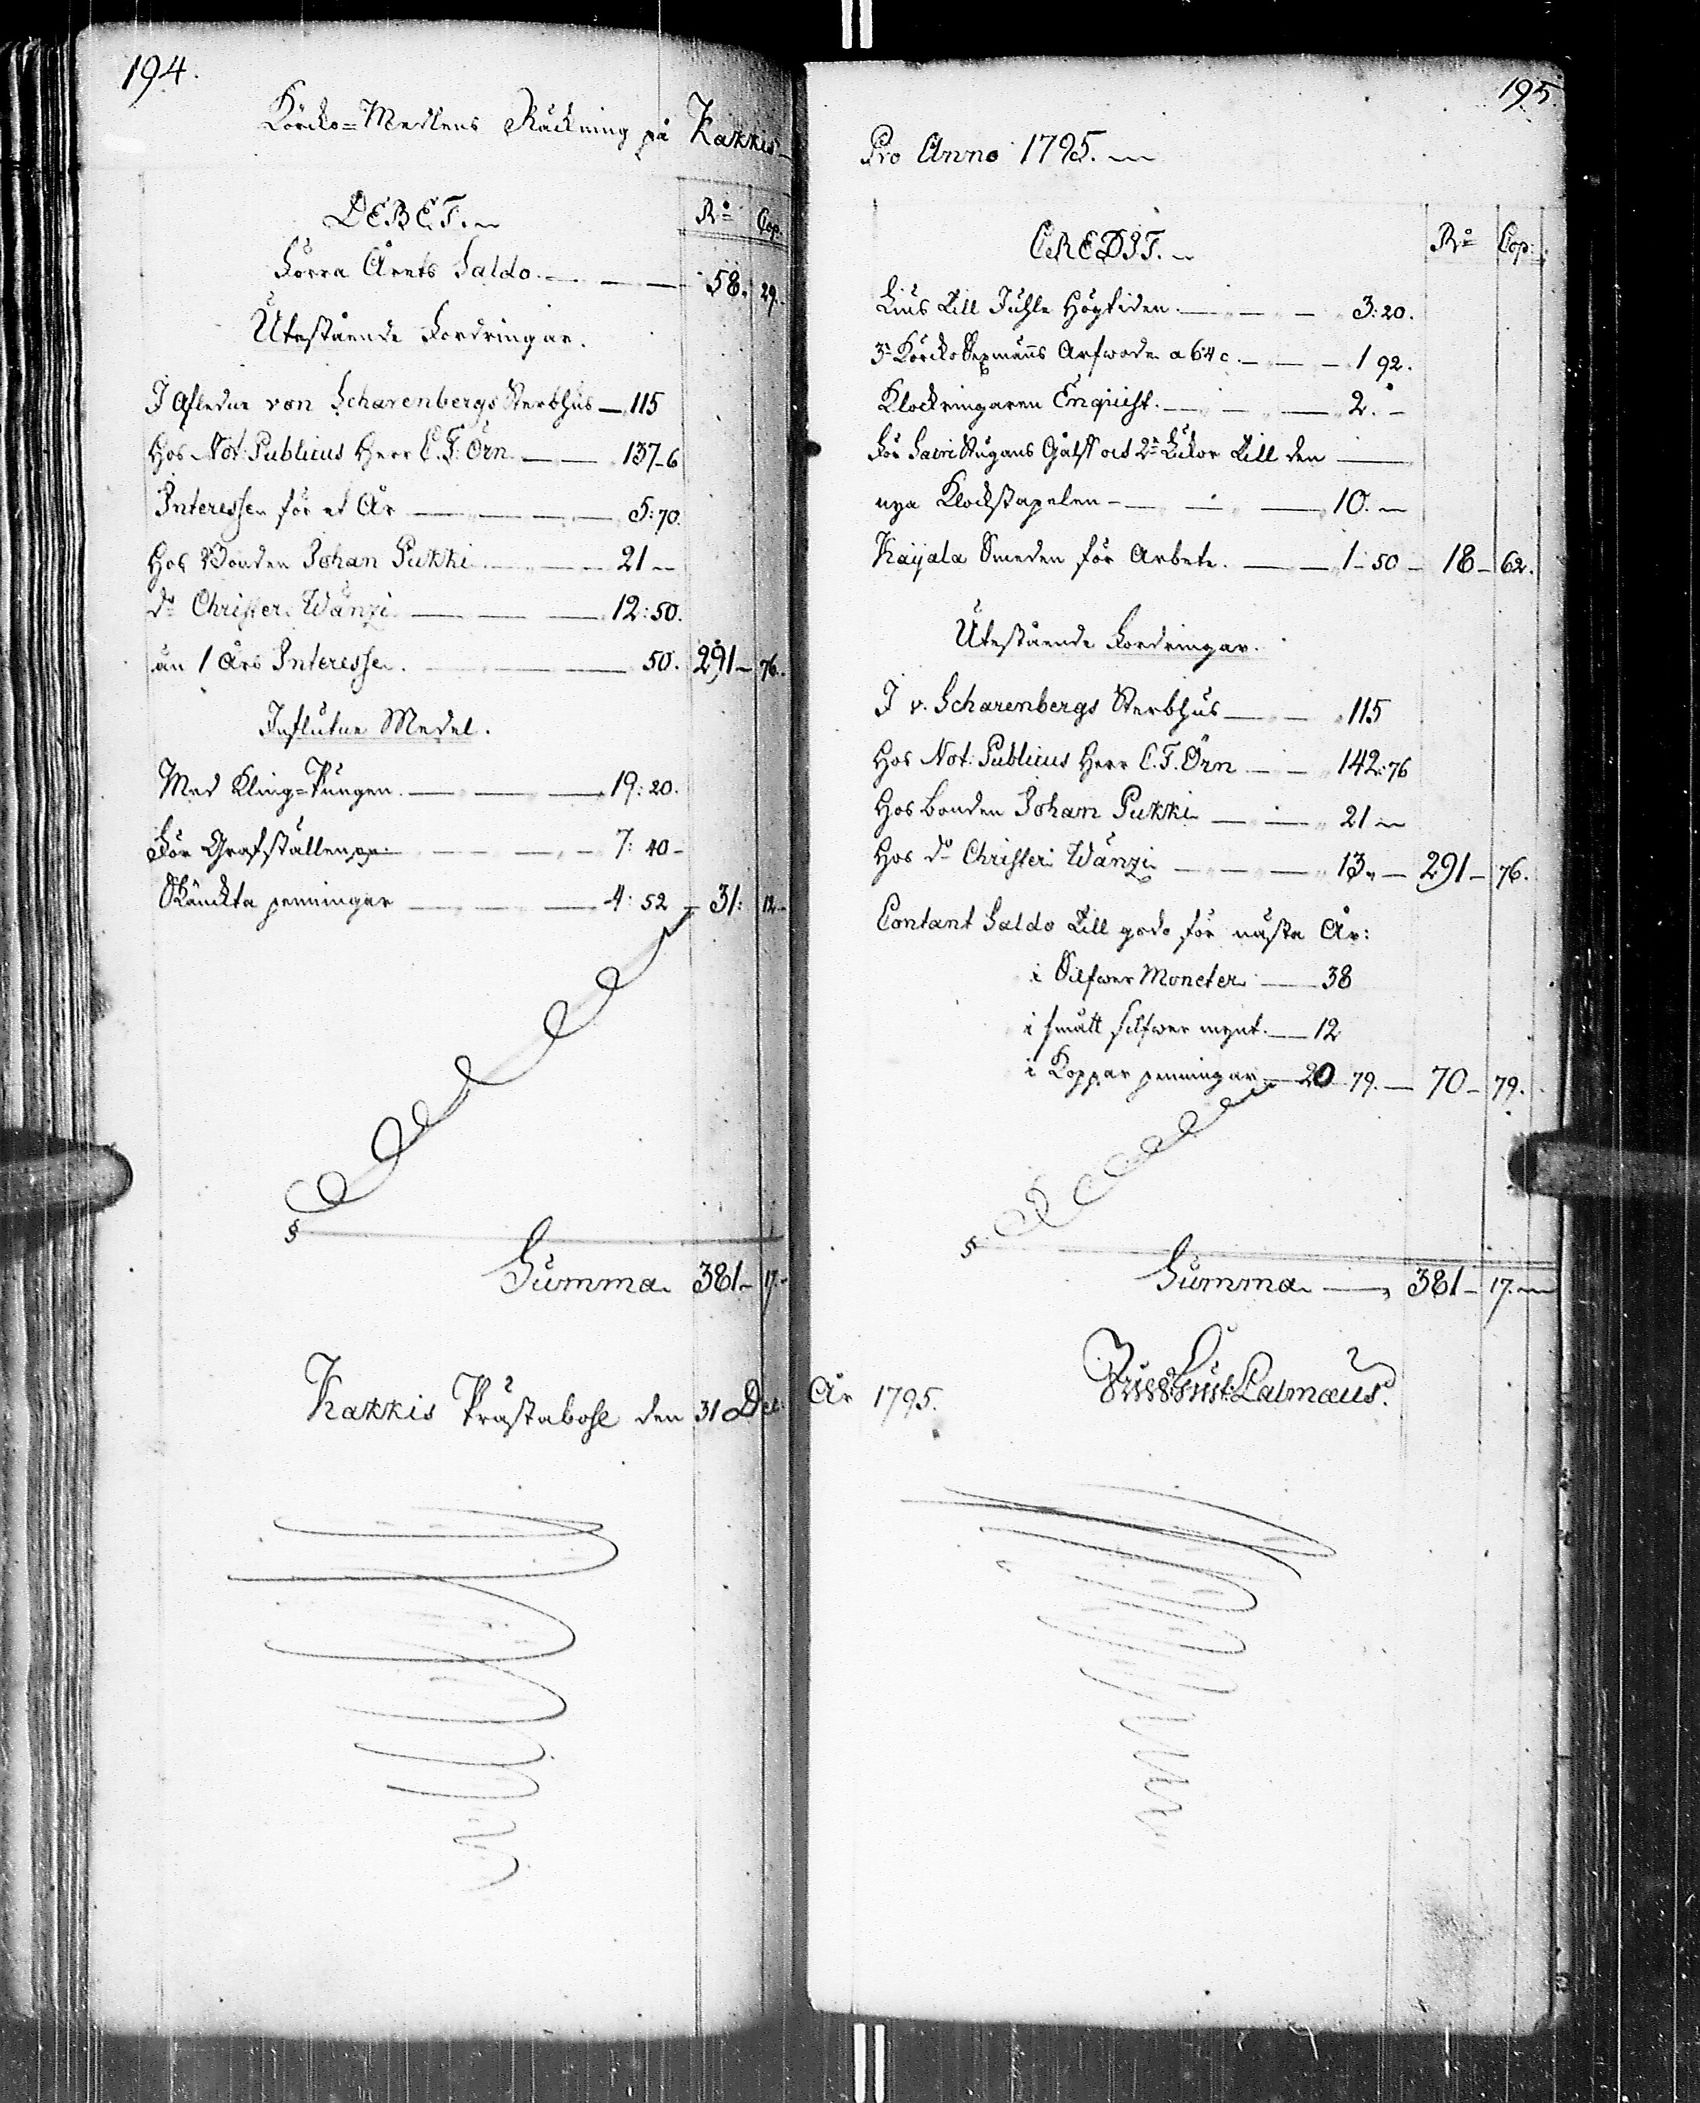 194.
Körcko=Medlens Räckning på Kakkis
DEBET.
Ro Cop.
Förra Årets Saldo. 58. 29.
Utestående Fordringar.
I Afledne von Scharenbergs Sterbhus 115
Hos Not: Publicus Herr C. F. Örn 137-6
Interessen för et År 5:70.
Hos Bonden Johan Pukki 21
do Christer Wänzi 12:50.
än 1 Års Interesse. 50. 291 76.
Influtne Medel.
Med Kling=Pungen. 19:20.
För Grafställen 7:40
Skänckta penningar 4:52 31: 12
§
Summa 381 17.
Kakkis Prästabohl den 31 Dec:
195.
Pro Anno 1795.
CREDIT.
Ro Cop:
Lius till Juhle Högtiden 3:20.
3ne Körcko Sexmanns Arfwode a 64 c. 1 92.
Klockringaren Enquist. 2.
För Gålf 2ne till den
nya Klockstapelen 10.
Kayala Smeden för Arbete. 1-50 18 62.
Utestående Fordringar.
I v. Scharenbergs Sterbhus 115
Hos Not: Publicus Herr C. F. Örn 142:76
Hos Bonden Johan Pukki 21
Hos do Christer Wänzi 13 291 76.
Contant Saldo till godo för nästa År:
i Silfwer Moneter 38
i smått silfwer mynt. 12
i Koppar penningar 20 79. 70 79.
§
Summa 381 17.
År 1795.